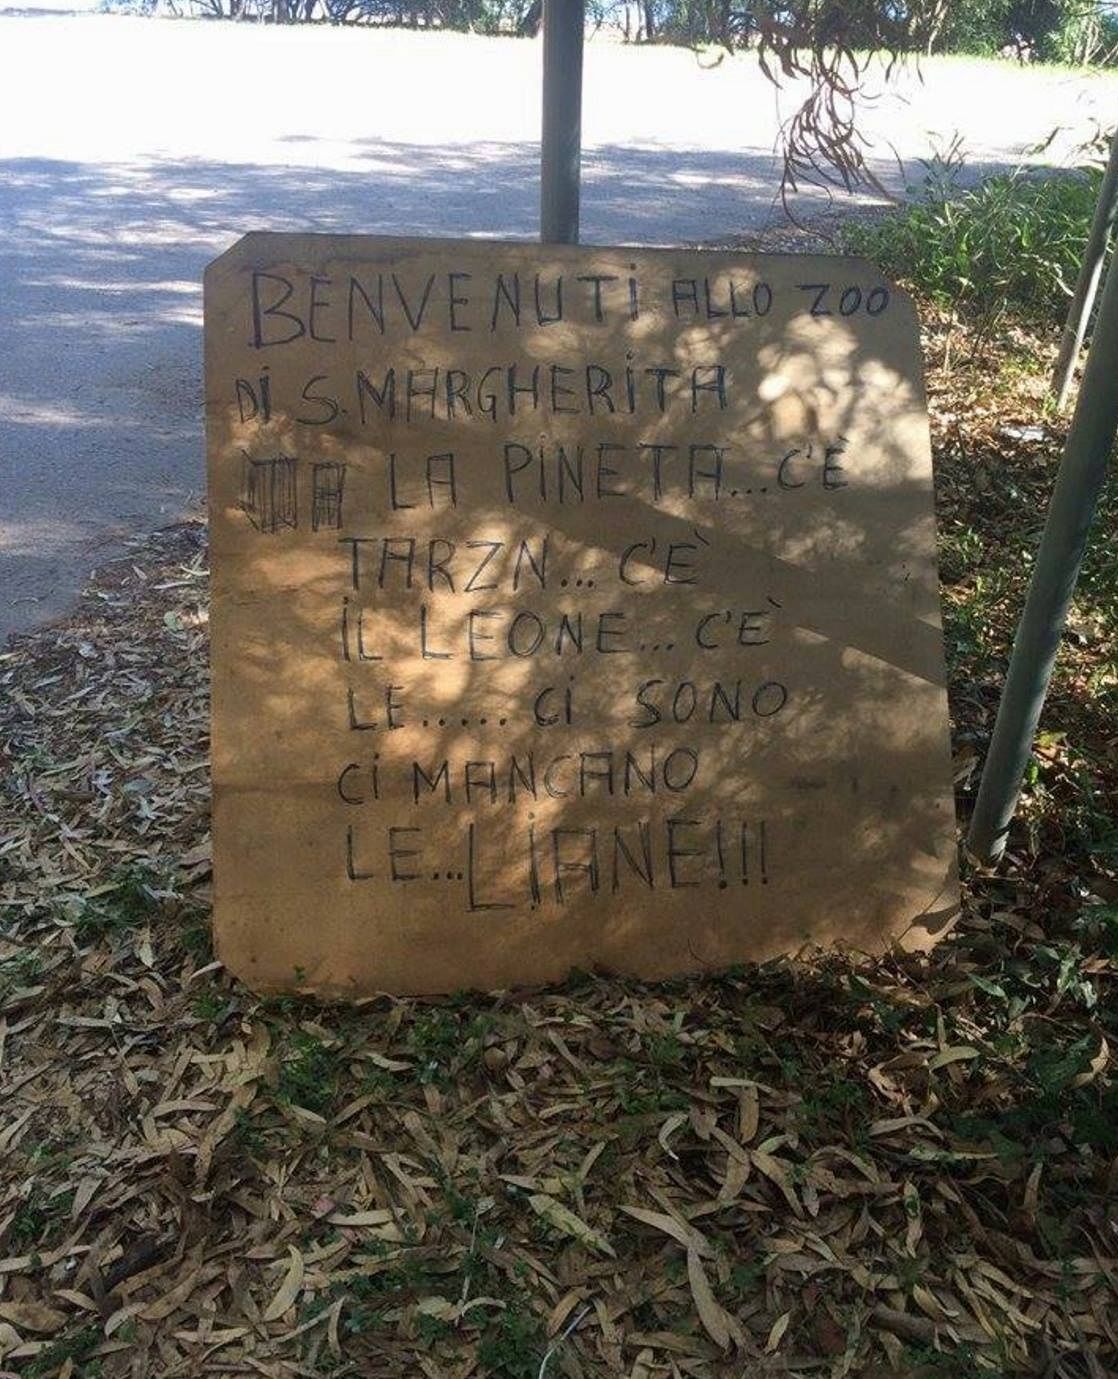 BENVENUTI ALLO ZOO
DI S. MARGHERITA
LA PINETA... C'È
TARZN... C'È
IL LEONE... C'È
LE..... CI SONO
CI MANCANO
LE... LIANE!!!